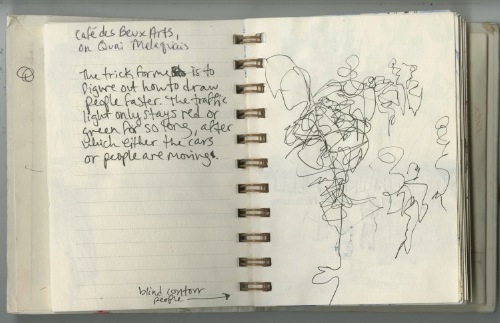 Café des Beux Arts,
on Quai Malaquais
The trick for me is to
figure out how to draw
people faster. The traffic
light only stays red or
green for so long, after
which either the cars
or people are moving.
blind contour
people →